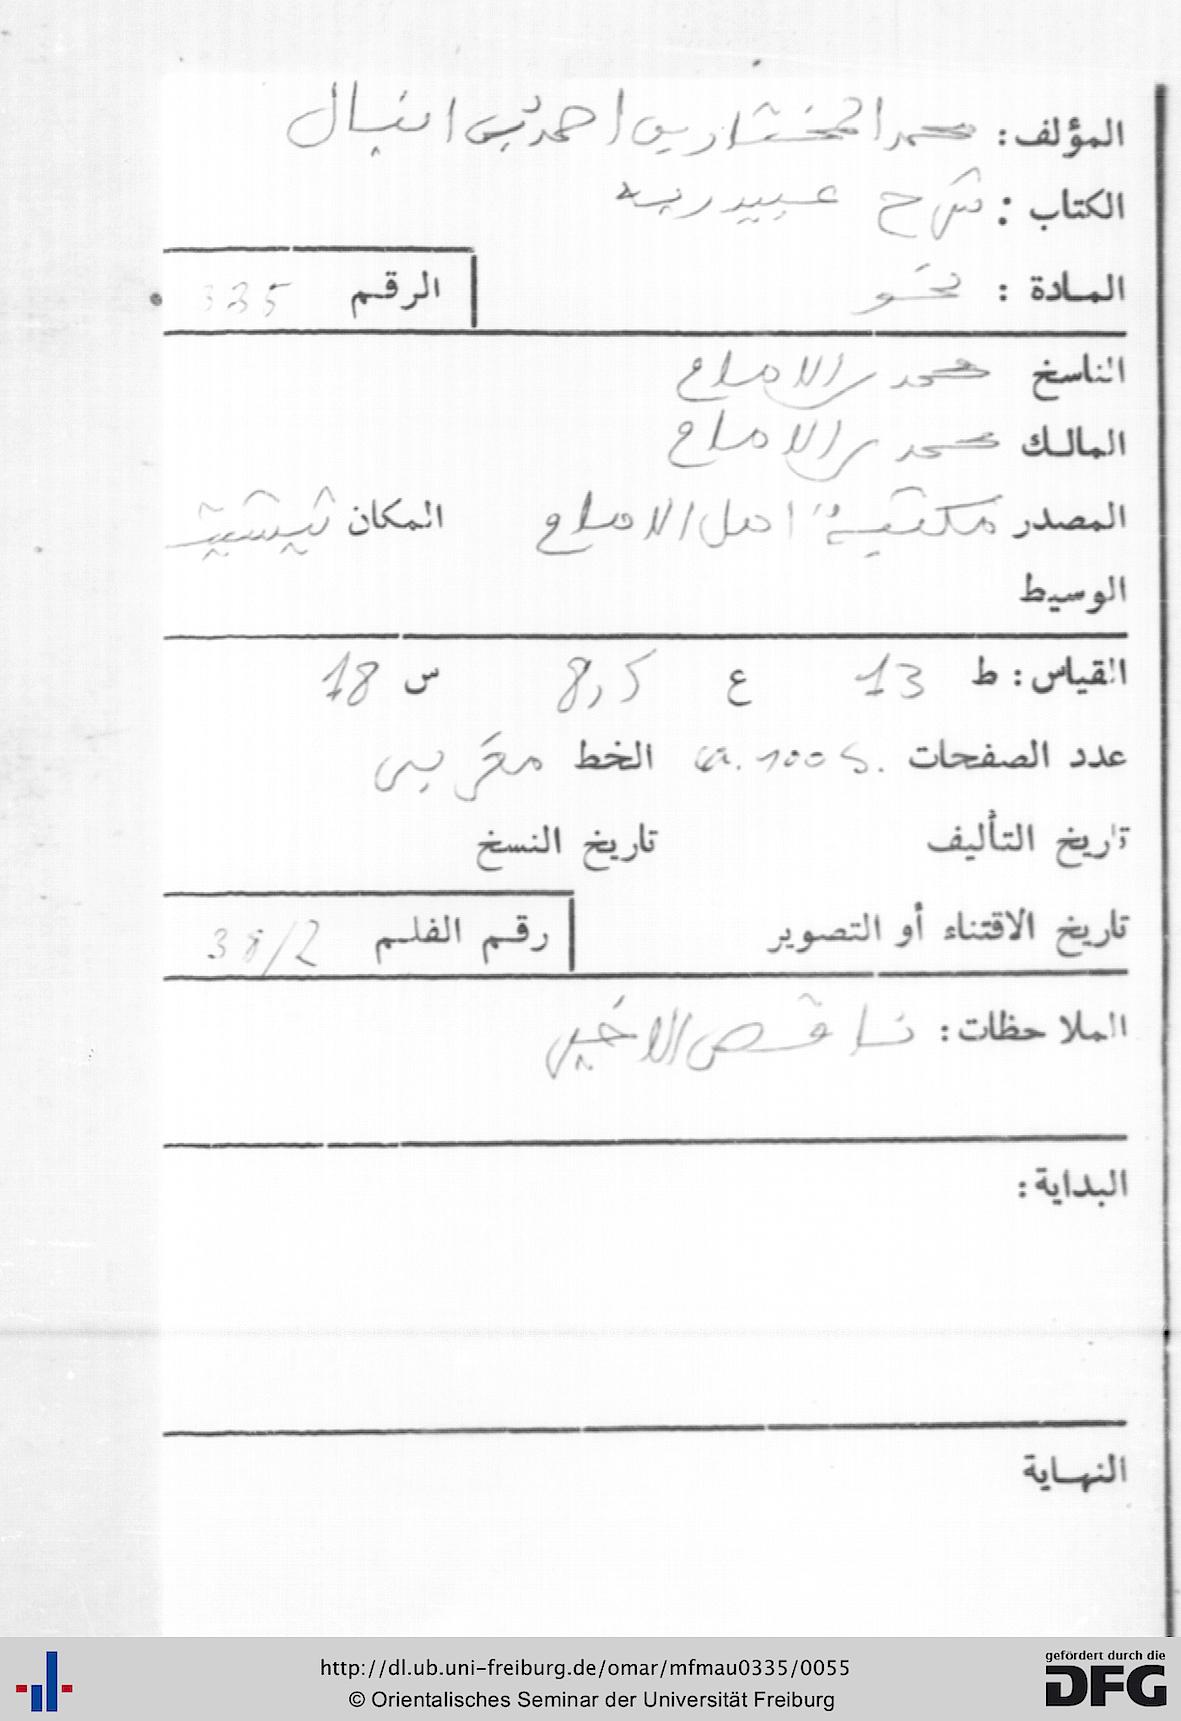 المؤلف: محمد المختار بن احمد بن انبال
الكتاب: شرح عبيد ربه
المادة: نحو
الرقم 335
الناسخ محمد بن الامام
المالك محمد بن الامام
المصدر مكتبة اهل الامام المكان تيشيت
الوسيط
القياس: ط 13 ع 8,5 س 18
عدد الصفحات ca. 100 S. الخط مغربي
تاريخ التأليف تاريخ النسخ
تاريخ الاقتناء أو التصوير رقم الفلم /2
الملاحظات: ناقص الاخير
البداية:
النهاية
http://dl.ub.uni-freiburg.de/omar/mfmau0335/0055
© Orientalisches Seminar der Universität Freiburg
gefördert durch die
DFG